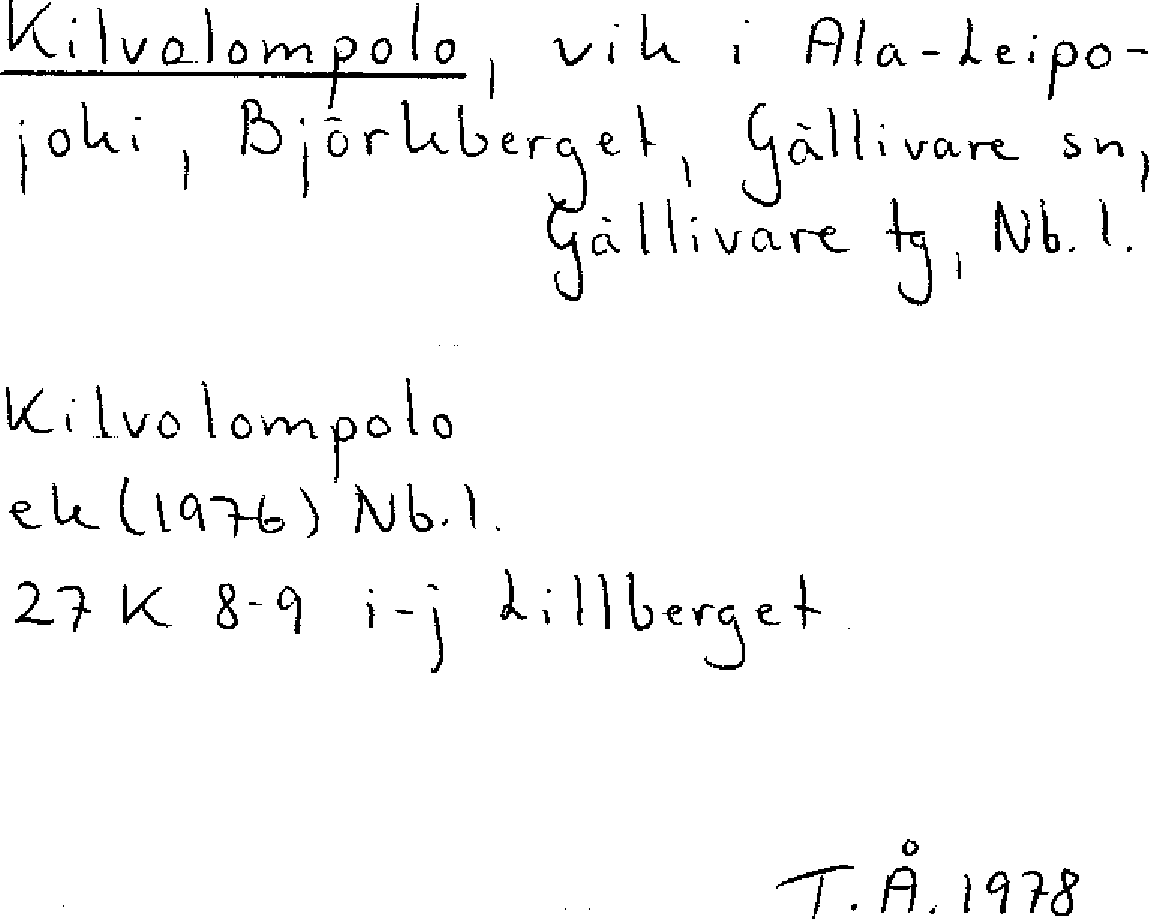 Kilvolompolo, vik i Ala-Leipo-
joki, Björkberget, Gällivare sn,
Gällivare tg, Nb. l.
Kilvolompolo
ek (1976) Nb. l.
27 K 8-9 i-j Lillberget.
T. Å. 1978